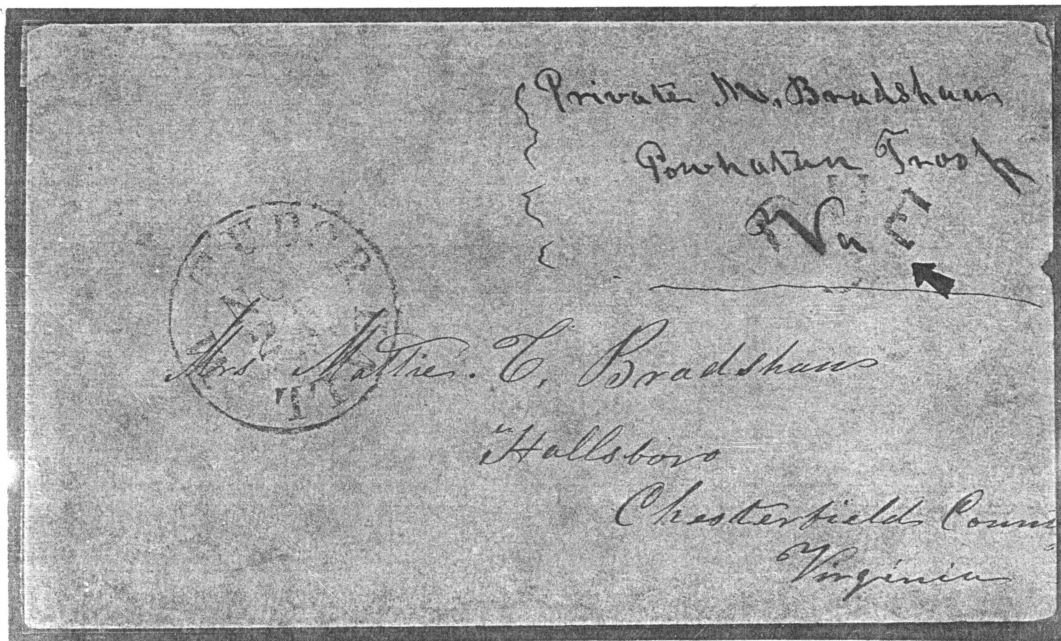 Private M. Bradshaw
Powhatan Troop
Va
Mrs Mattie. E. Bradshaw
Hallsboro
Chesterfield County
Virginia